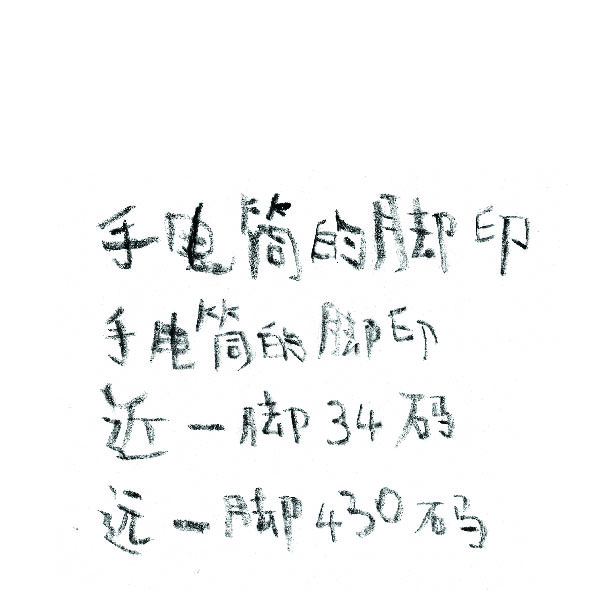 手电筒的脚印
手电筒的脚印
近一脚34码
远一脚430码